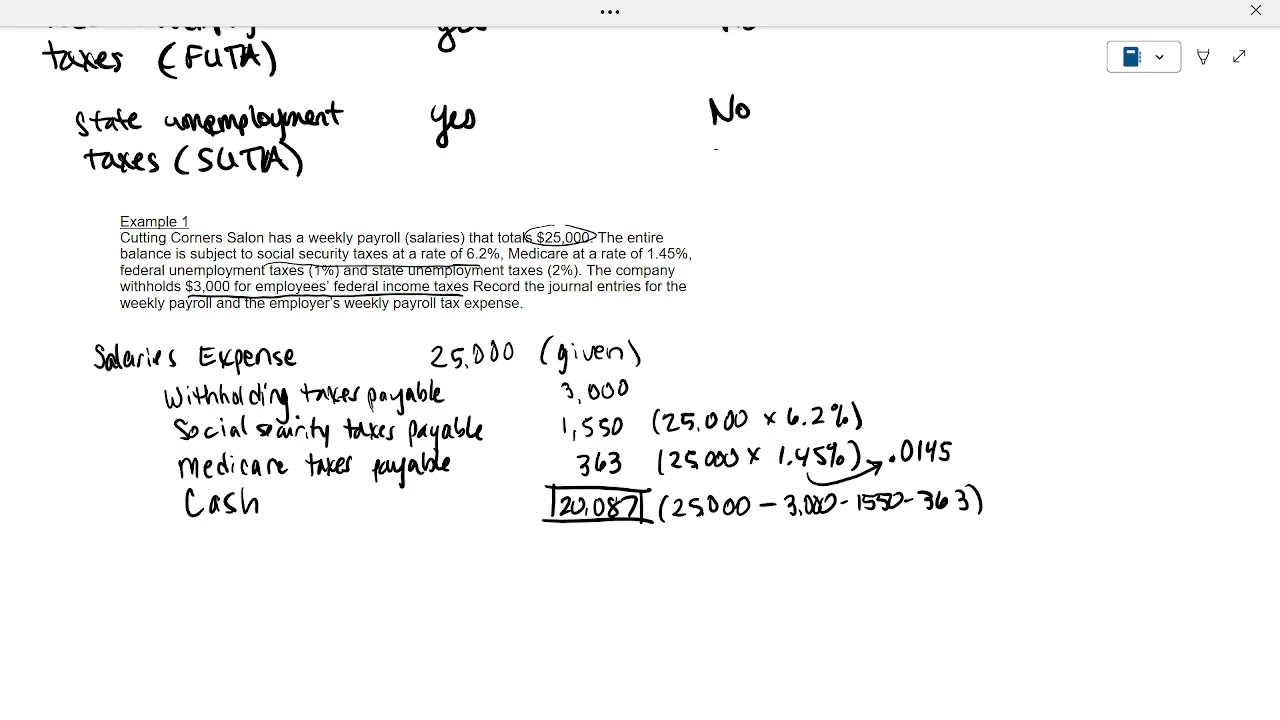 taxes (FUTA)
State unemployment yes No
taxes (SUTA)
Example 1
Cutting Corners Salon has a weekly payroll (salaries) that totals $25,000. The entire
balance is subject to social security taxes at a rate of 6.2%, Medicare at a rate of 1.45%,
federal unemployment taxes (1%) and state unemployment taxes (2%). The company
withholds $3,000 for employees' federal income taxes Record the journal entries for the
weekly payroll and the employer's weekly payroll tax expense.
Salaries Expense 25,000 (given)
Withholding taxes payable 3,000
Social security taxes payable 1,550 (25,000 × 6.2%)
Medicare taxes payable 363 (25,000 × 1.45%) .0145
Cash 20,087 (25,000 - 3,000 - 1550 - 363)